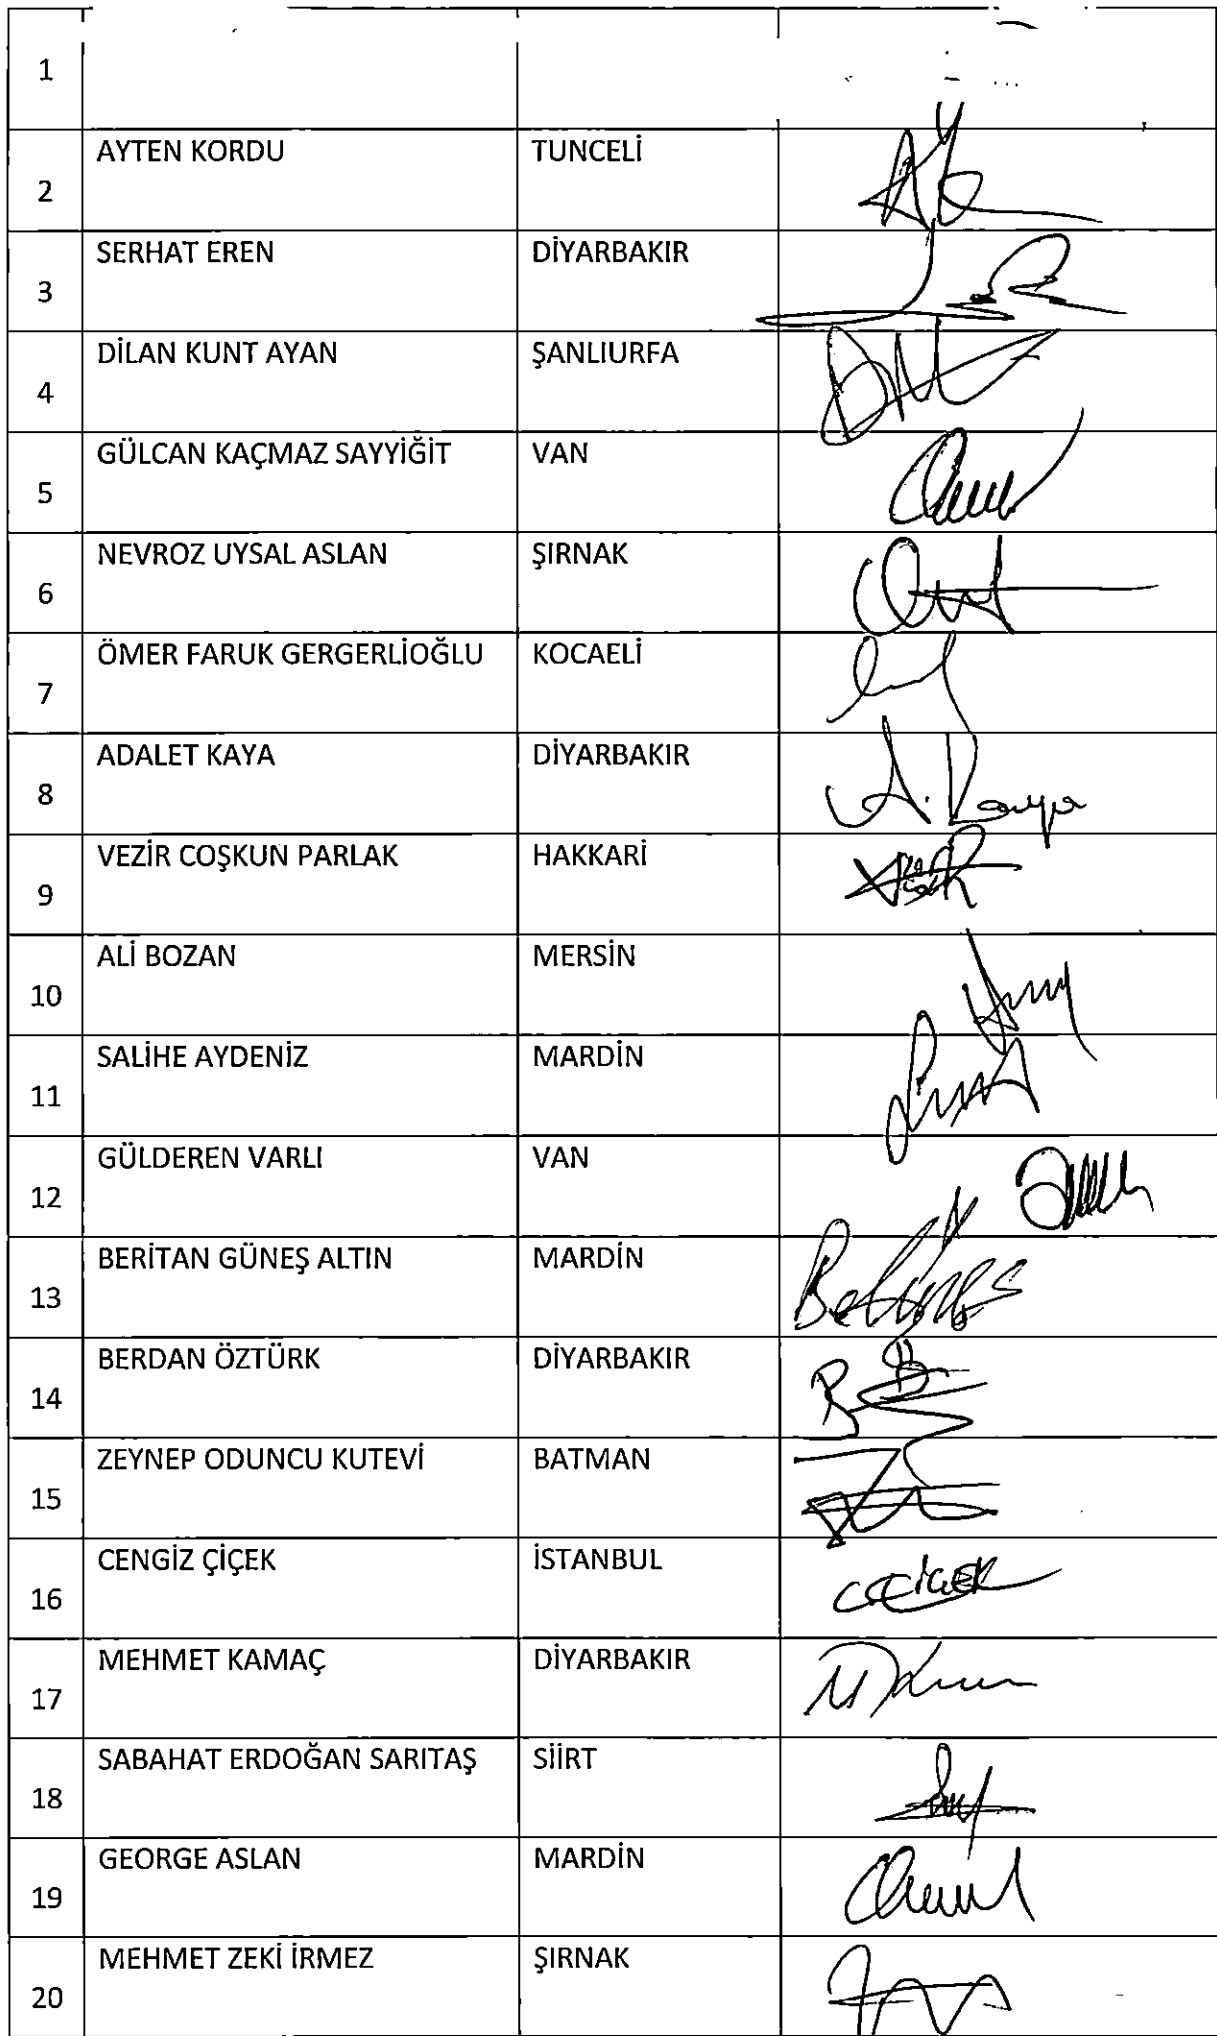 1
2 AYTEN KORDU TUNCELİ
3 SERHAT EREN DİYARBAKIR
4 DİLAN KUNT AYAN ŞANLIURFA
5 GÜLCAN KAÇMAZ SAYYİĞİT VAN
6 NEVROZ UYSAL ASLAN ŞIRNAK
7 ÖMER FARUK GERGERLİOĞLU KOCAELİ
8 ADALET KAYA DİYARBAKIR A. Kaya
9 VEZİR COŞKUN PARLAK HAKKARİ
10 ALİ BOZAN MERSİN
11 SALİHE AYDENİZ MARDİN
12 GÜLDEREN VARLI VAN
13 BERİTAN GÜNEŞ ALTIN MARDİN
14 BERDAN ÖZTÜRK DİYARBAKIR
15 ZEYNEP ODUNCU KUTEVİ BATMAN
16 CENGİZ ÇİÇEK İSTANBUL
17 MEHMET KAMAÇ DİYARBAKIR
18 SABAHAT ERDOĞAN SARITAŞ SİİRT
19 GEORGE ASLAN MARDİN
20 MEHMET ZEKİ İRMEZ ŞIRNAK